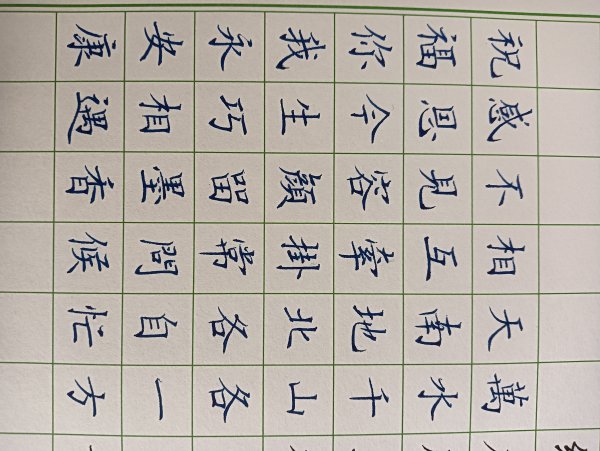 萬水千山各一方
天南地北各自忙
相互牽掛常問候
不見容顏留墨香
感恩今生巧相遇
祝福你我永安康